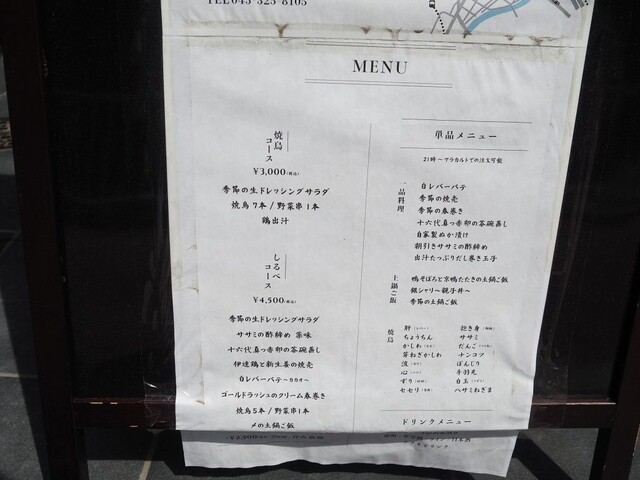 TEL 045-325-8105
MENU
焼鳥
コース
¥3,000(税込)
季節の生ドレッシングサラダ
焼鳥7本/野菜串1本
鶏出汁
しるべ
コース
¥4,500(税込)
季節の生ドレッシングサラダ
ササミの酢締め 薬味
十六代真っ赤卵の茶碗蒸し
伊達鶏と新生姜の焼売
白レバーパテ〜カカオ〜
ゴールドラッシュのクリーム春巻き
焼鳥5本/野菜串1本
〆の土鍋ご飯
単品メニュー
21時〜アラカルトでの注文可能
一品料理
白レバーパテ
季節の焼売
季節の春巻き
十六代真っ赤卵の茶碗蒸し
自家製ぬか漬け
朝引きササミの酢締め
出汁たっぷりだし巻き玉子
土鍋ご飯
鴨そぼろと京鴨たたきの土鍋ご飯
銀シャリ〜親子丼〜
季節の土鍋ご飯
焼鳥
肝(レバー)
ちょうちん
かしわ
芽ねぎかしわ
波
心
ずり
セセリ
抱き身
ササミ
だんご
ナンコツ
ぼんじり
手羽先
白玉
ハサミねぎま
ドリンクメニュー